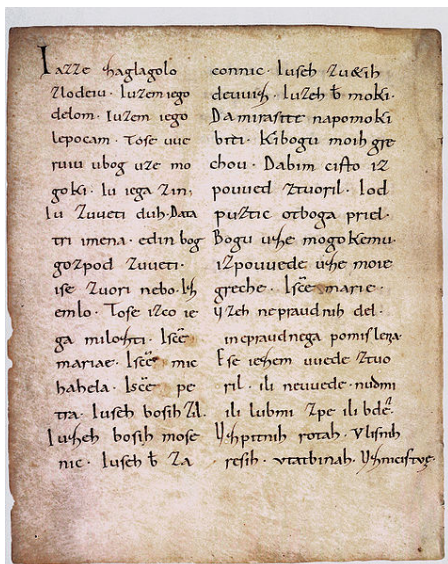 Iazze zaglagolo
zlodeiu. Iuzem iego
delom. Iuzem iego
lepocam. Tose uue
ruiu ubog uze mo
goki. Iu iega zin,
Iu zuueti duh. Data
tri imena. edin bog
gozpod zuueti.
ise zuori nebo. Iz
emlo. Tose izco ie
ga milozti. Isce
mariae. Isce mic
hahela. Isce pe
tra. Iuseh bosih zil.
Iuzeh bosih mose
nic. Iuseh b za
connic. Iuseh zu&ih
deuuiz. Iuzeh b moki.
Da mirasite napomoki
biti. Kibogu moih gre
chou. Dabim cisto iz
pouued ztuoril. Iod
puztic otboga priel.
Bogu uze mogokemu.
izpouuede uze moie
greche. Isce marie.
Vzeh nepraudnih del.
inepraudnega pomislena.
Ese iezem uuede ztuo
ril. ili neuuede. nudmi
ili lubmi zpe ili bde.
Vzpitnih rotah. Vlisnih
resih. vtatbinah. Vznicistve.